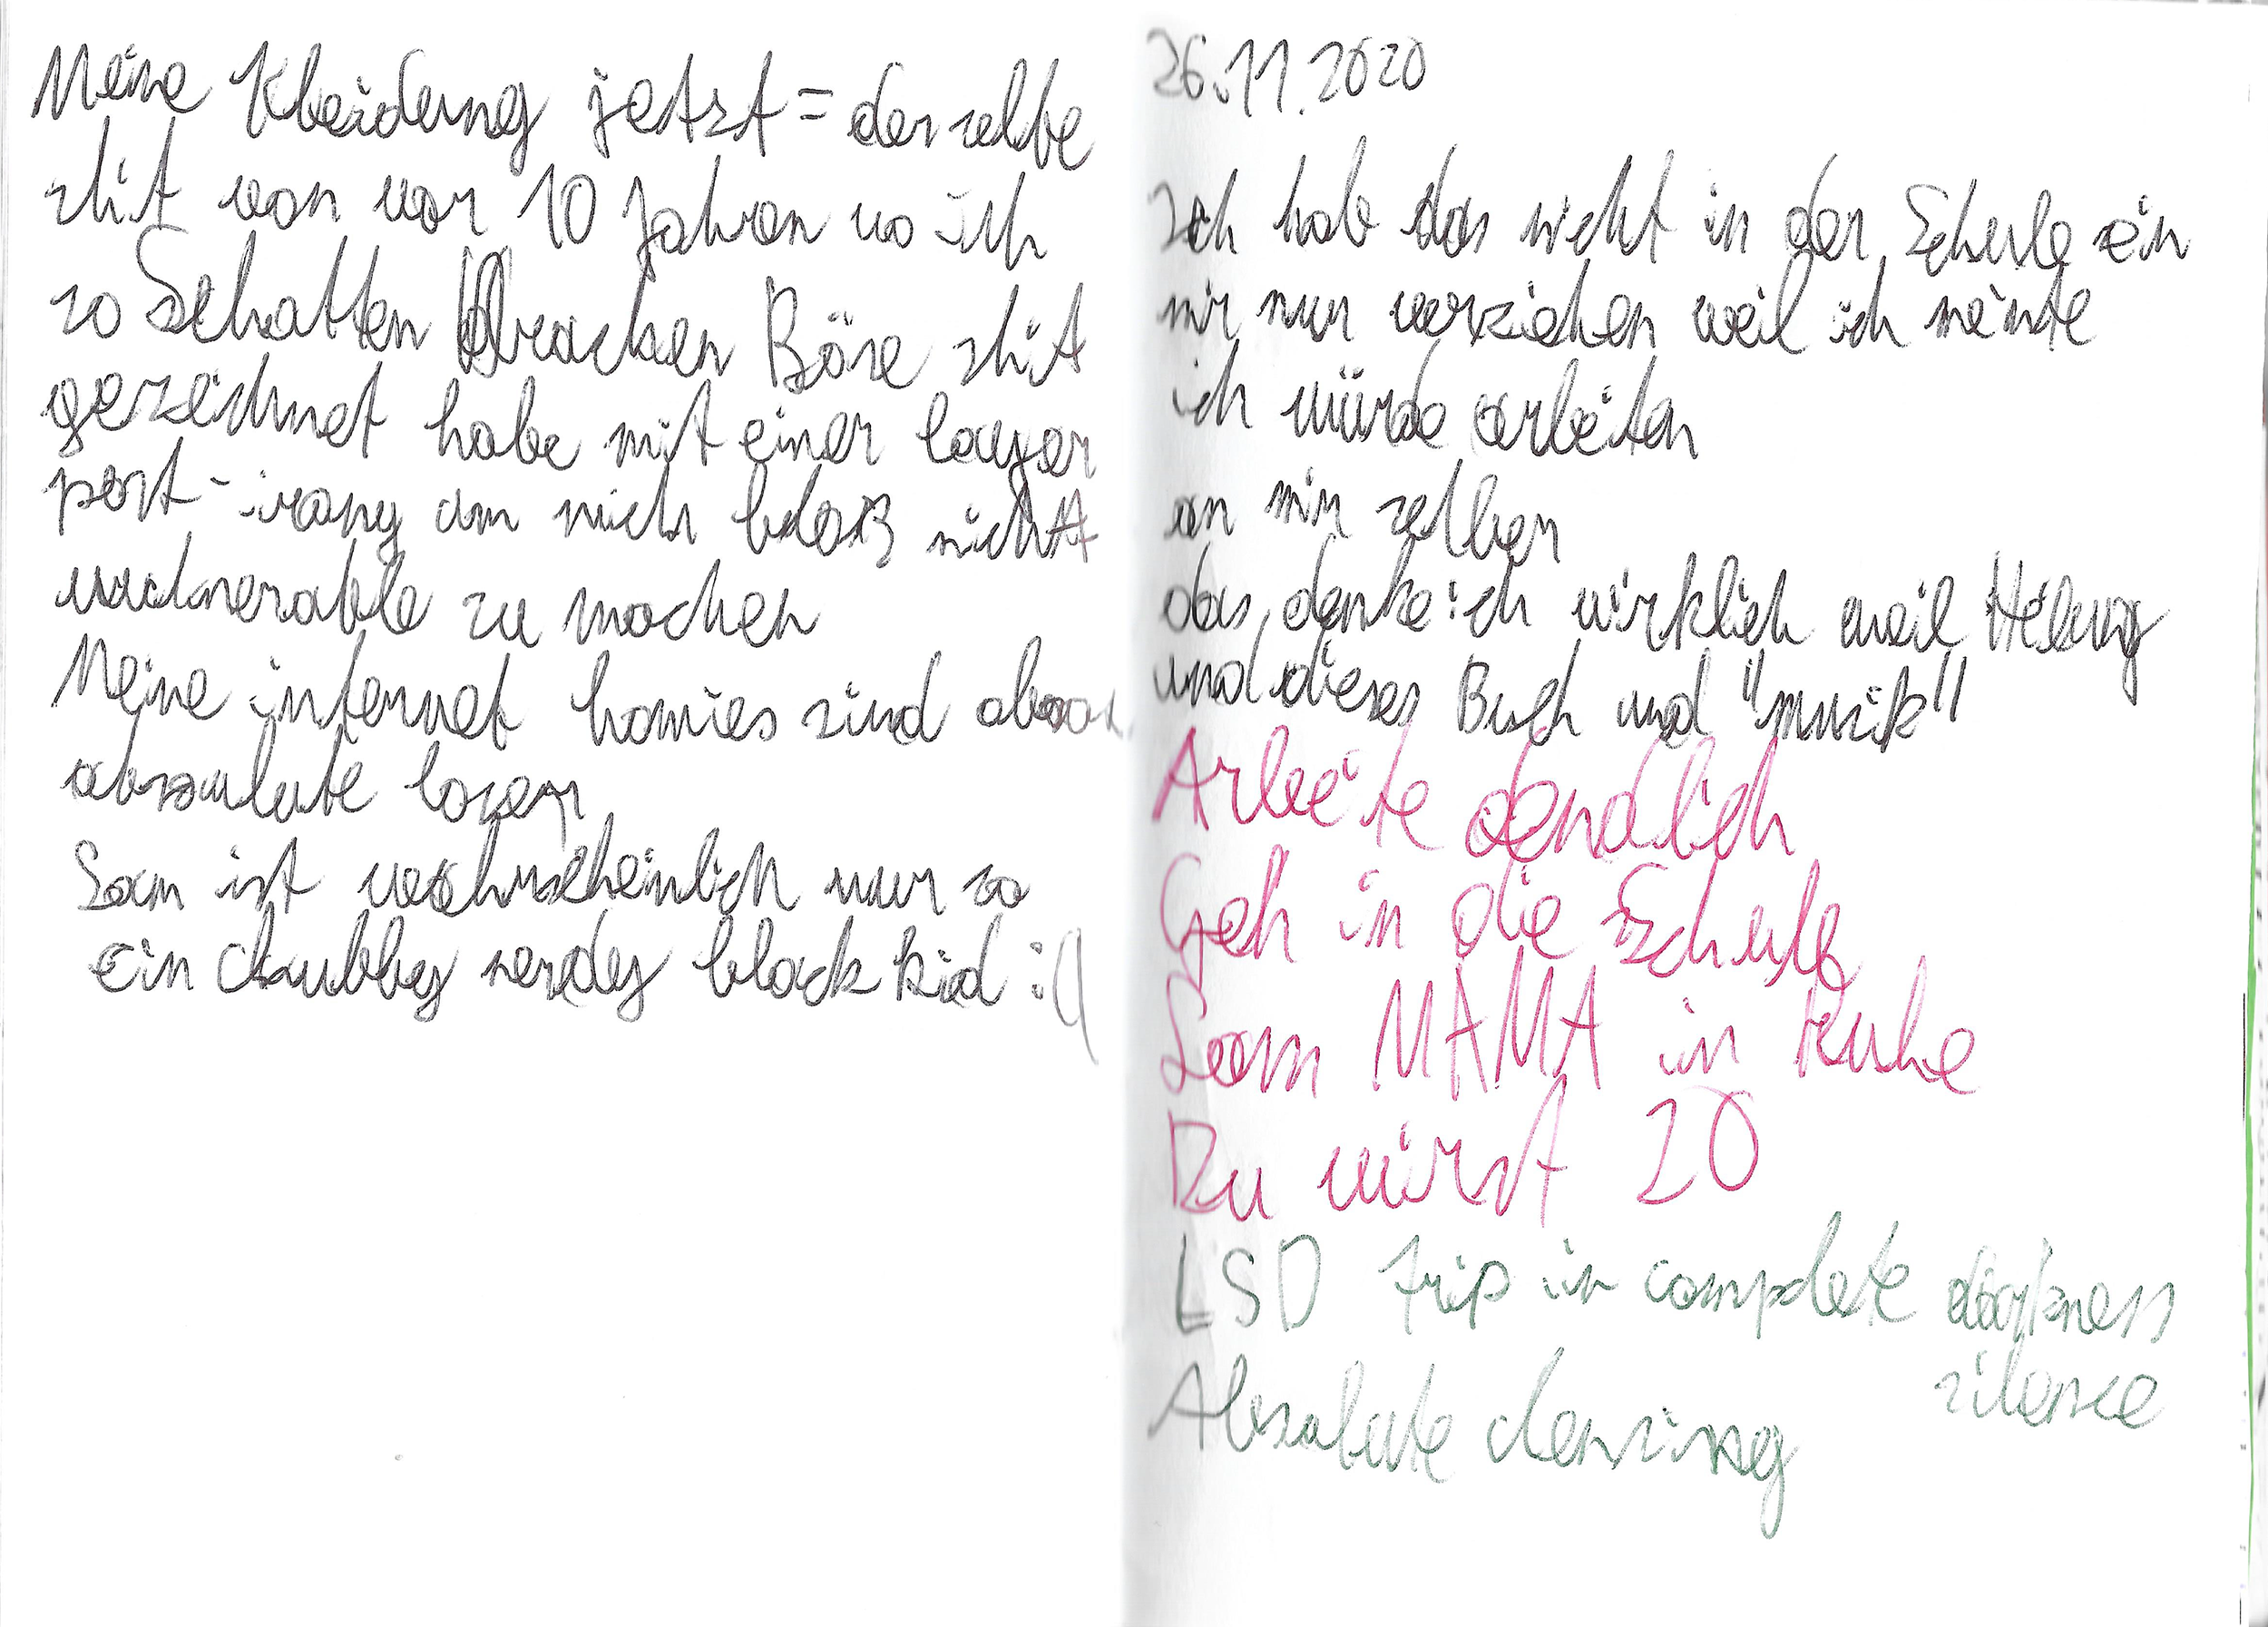 Meine Kleidung jetzt = derselbe
shit von vor 10 Jahren wo ich
so Schatten Drachen Böse shit
gezeichnet habe mit einer layer
post-irony um mich bloß nicht
vulnerable zu machen
Meine internet homies sind
absolute loser
Sam ist wahrscheinlich nur so
ein chubby nerdy black kid :(
26.11.2020
Ich hab das nicht in der Schule sein
mir nur verziehen weil ich meinte
ich würde arbeiten
an mir selber
das denke ich wirklich weil Heilung
und dieses Buch und "musik"
Arbeite endlich
Geh in die Schule
Lass MAMA in Ruhe
Du wirst 20
LSD trip in complete darkness
silence
Absolute cleansing